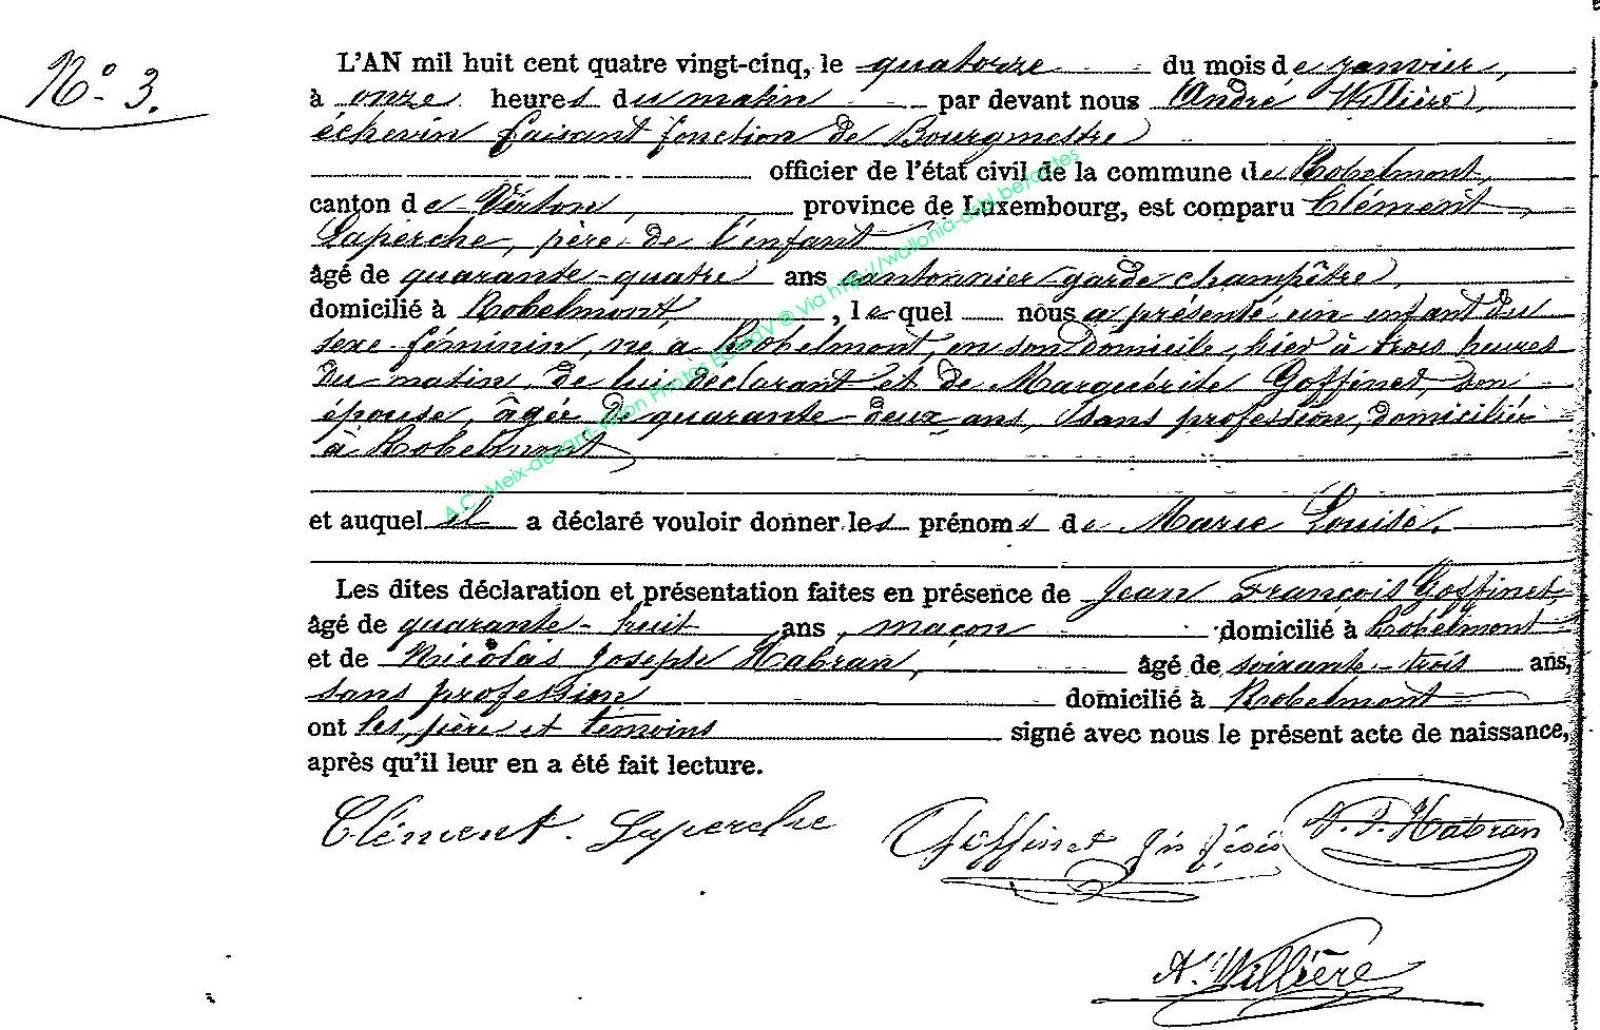 N° 3.
L'AN mil huit cent quatre vingt-cinq, le quatorze du mois de janvier,
à onze heures du matin par devant nous André Willière,
échevin faisant fonction de Bourgmestre
officier de l'état civil de la commune de Robelmont,
canton de Virton, province de Luxembourg, est comparu Clément
Laperche, père de l'enfant
âgé de quarante-quatre ans cantonnier-garde champêtre,
domicilié à Robelmont, lequel nous a présenté un enfant du
sexe féminin, né à Robelmont, en son domicile, hier à trois heures
du matin, de lui déclarant et de Marguérite Goffinet, son
épouse, âgée de quarante-deux ans, sans profession, domiciliée
à Robelmont
et auquel il a déclaré vouloir donner les prénoms de Marie Louise.
Les dites déclaration et présentation faites en présence de Jean François Goffinet
âgé de quarante-huit ans, maçon domicilié à Robelmont
et de Nicolas Joseph Habran, âgé de soixante-trois ans,
sans profession domicilié à Robelmont
ont les père et témoins signé avec nous le présent acte de naissance,
après qu'il leur en a été fait lecture.
Clément. Laperche Goffinet Jn N. J. Habran
A. Willière
A.C. Meix-devant-Virton Photos EGMdV @ Via http://wallonia-asbl.be/actes